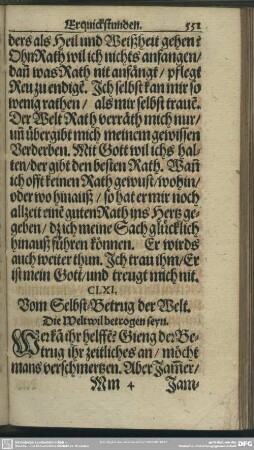 Erquickstunden. 551
ders als Heil und Weißheit gehen?
Ohn Rath wil ich nichts anfangen/
dañ was Rath nit anfängt/ pflegt
Reu zu endigẽ. Ich selbst kan mir so
wenig rathen/ als mir selbst trauẽ.
Der Welt Rath verräth mich nur/
uñ übergibt mich meinem gewissen
Verderben. Mit Gott wil ichs hal-
ten/ der gibt den besten Rath. Wañ
ich offt keinen Rath gewust/ wohin/
oder wo hinauß/ so hat er mir noch
allzeit einẽ guten Rath ins Hertz ge-
geben/ dz ich meine Sach glücklich
hinauß führen können. Er wirds
auch weiter thun. Ich trau ihm/ Er
ist mein Gott/ und treugt mich nit.
CLXI.
Vom Selbst-Betrug der Welt.
Die Welt wil betrogen seyn.
Wer kã ihr helffẽ? Gieng der Be-
trug ihr zeitliches an/ möcht
mans verschmertzen. Aber Jam̃er/
Mm 4 Jam-